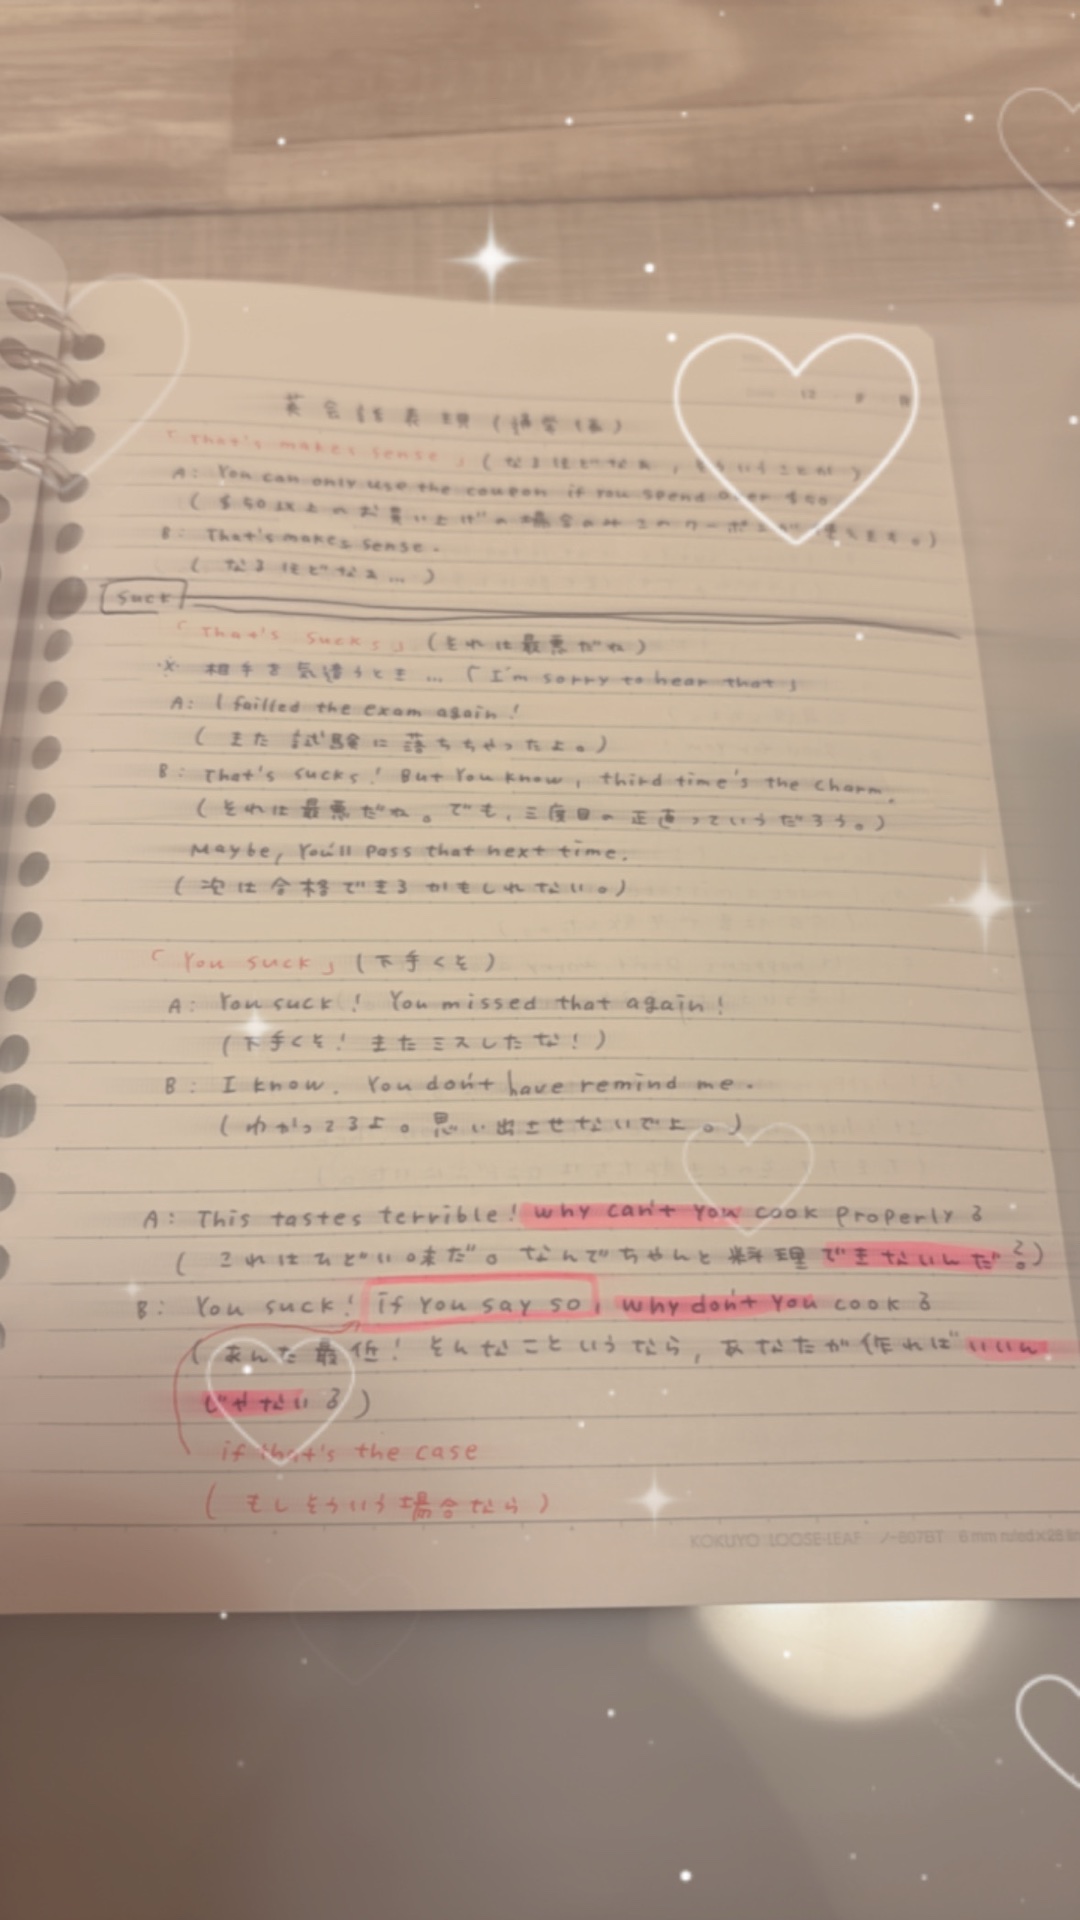 英会話表現(通常係)
「That's makes sense」(なるほどなぁ,そういうことか)
A: You can only use the coupon if you spend over $50.
($50以上のお買い上げの場合のみこのクーポンが使えます。)
B: That's makes sense.
(なるほどなぁ...)
suck
「That's sucks」(それは最悪だね)
※ 相手を気遣うとき...「I'm sorry to hear that」
A: I failled the exam again!
(また試験に落ちちゃったよ。)
B: That's sucks! But You know, third time's the charm.
(それは最悪だね。でも,三度目の正直っていうだろう。)
Maybe, You'll pass that next time.
(次は合格できるかもしれない。)
「You suck」(下手くそ)
A: You suck! You missed that again!
(下手くそ!またミスしたな!)
B: I know. You don't have remind me.
(わかってるよ。思い出させないでよ。)
A: This tastes terrible! why can't you cook properly?
(これはひどい味だ。なんでちゃんと料理できないんだ?)
B: You suck! if you say so, why don't you cook?
(あんた最低!そんなこというなら,あなたが作ればいいん
じゃない?)
if that's the case
(もしそういう場合なら)
KOKUYO LOOSE-LEAF ノ-807BT 6 mm ruled×28